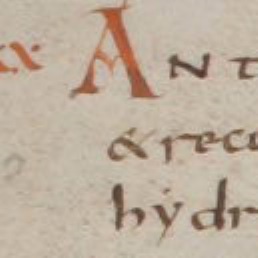 xx ANT
& reco
hẏdr